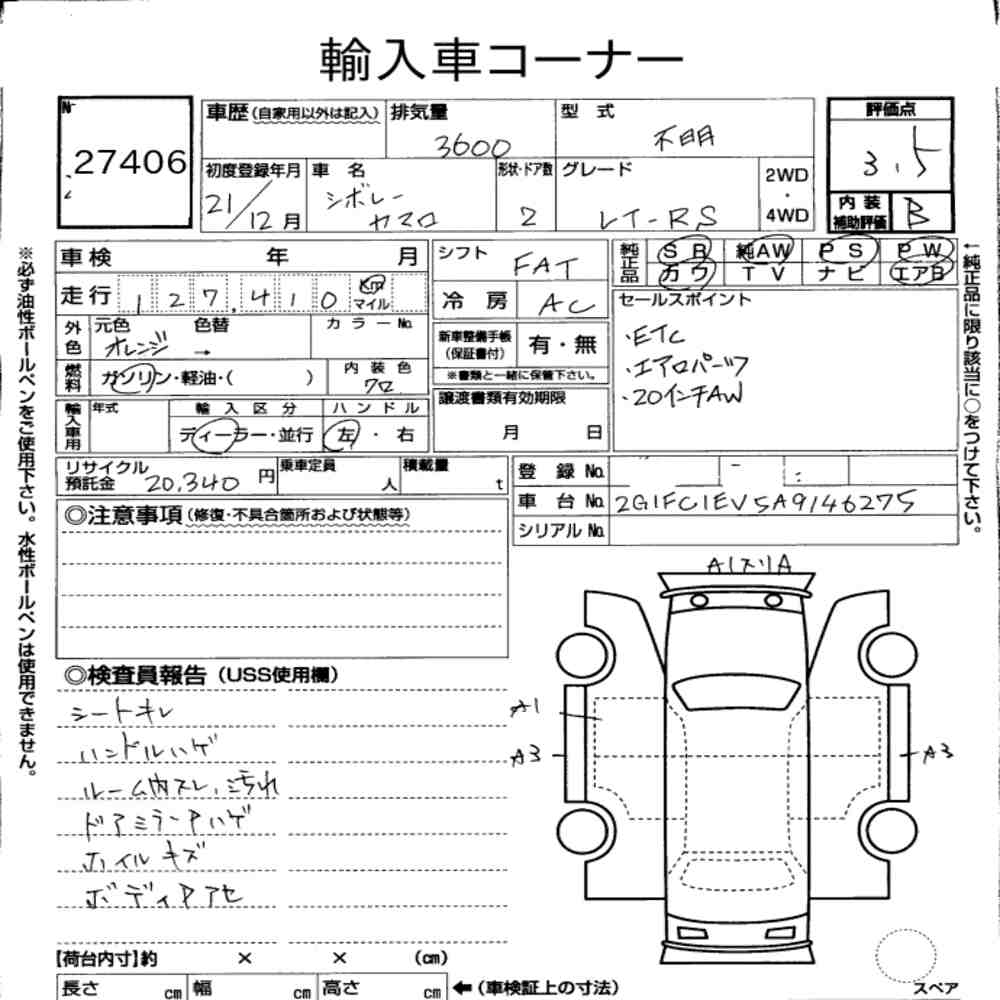 輸入車コーナー
№
27406
車歴(自家用以外は記入)
排気量
3600
型式
不明
評価点
3.5
初度登録年月
21/12月
車名
シボレー
カマロ
形状・ドア数
2
グレード
LT-RS
2WD
・
4WD
内装
補助評価
B
車検 年 月
シフト
FAT
純正品
SR 純AW PS PW
カワ TV ナビ エアB
走行 127,410 Km
マイル
冷房 AC
セールスポイント
・ETC
・エアロパーツ
・20インチAW
外色
元色 色替
オレンジ →
カラーNo.
新車整備手帳
(保証書付)
有・無
※書類と一緒に保管下さい。
燃料
ガソリン・軽油・( )
内装色
クロ
譲渡書類有効期限
月 日
輸入車用
年式
輸入区分
ディーラー・並行
ハンドル
左・右
リサイクル
預託金 20,340円
乗車定員
人
積載量
t
登録No.
車台No. 2G1FC1EV5A9146275
シリアルNo.
◎注意事項(修復・不具合箇所および状態等)
◎検査員報告(USS使用欄)
シートキレ
ハンドルハゲ
ルーム内スレ、汚れ
ドアミラーPハゲ
ホイルキズ
ボディPアセ
A1スリA
A1
A3
A3
スペア
【荷台内寸】約 × × (cm)
長さ cm 幅 cm 高さ cm ←(車検証上の寸法)
※必ず油性ボールペンをご使用下さい。水性ボールペンは使用できません。
←純正品に限り該当に○をつけて下さい。